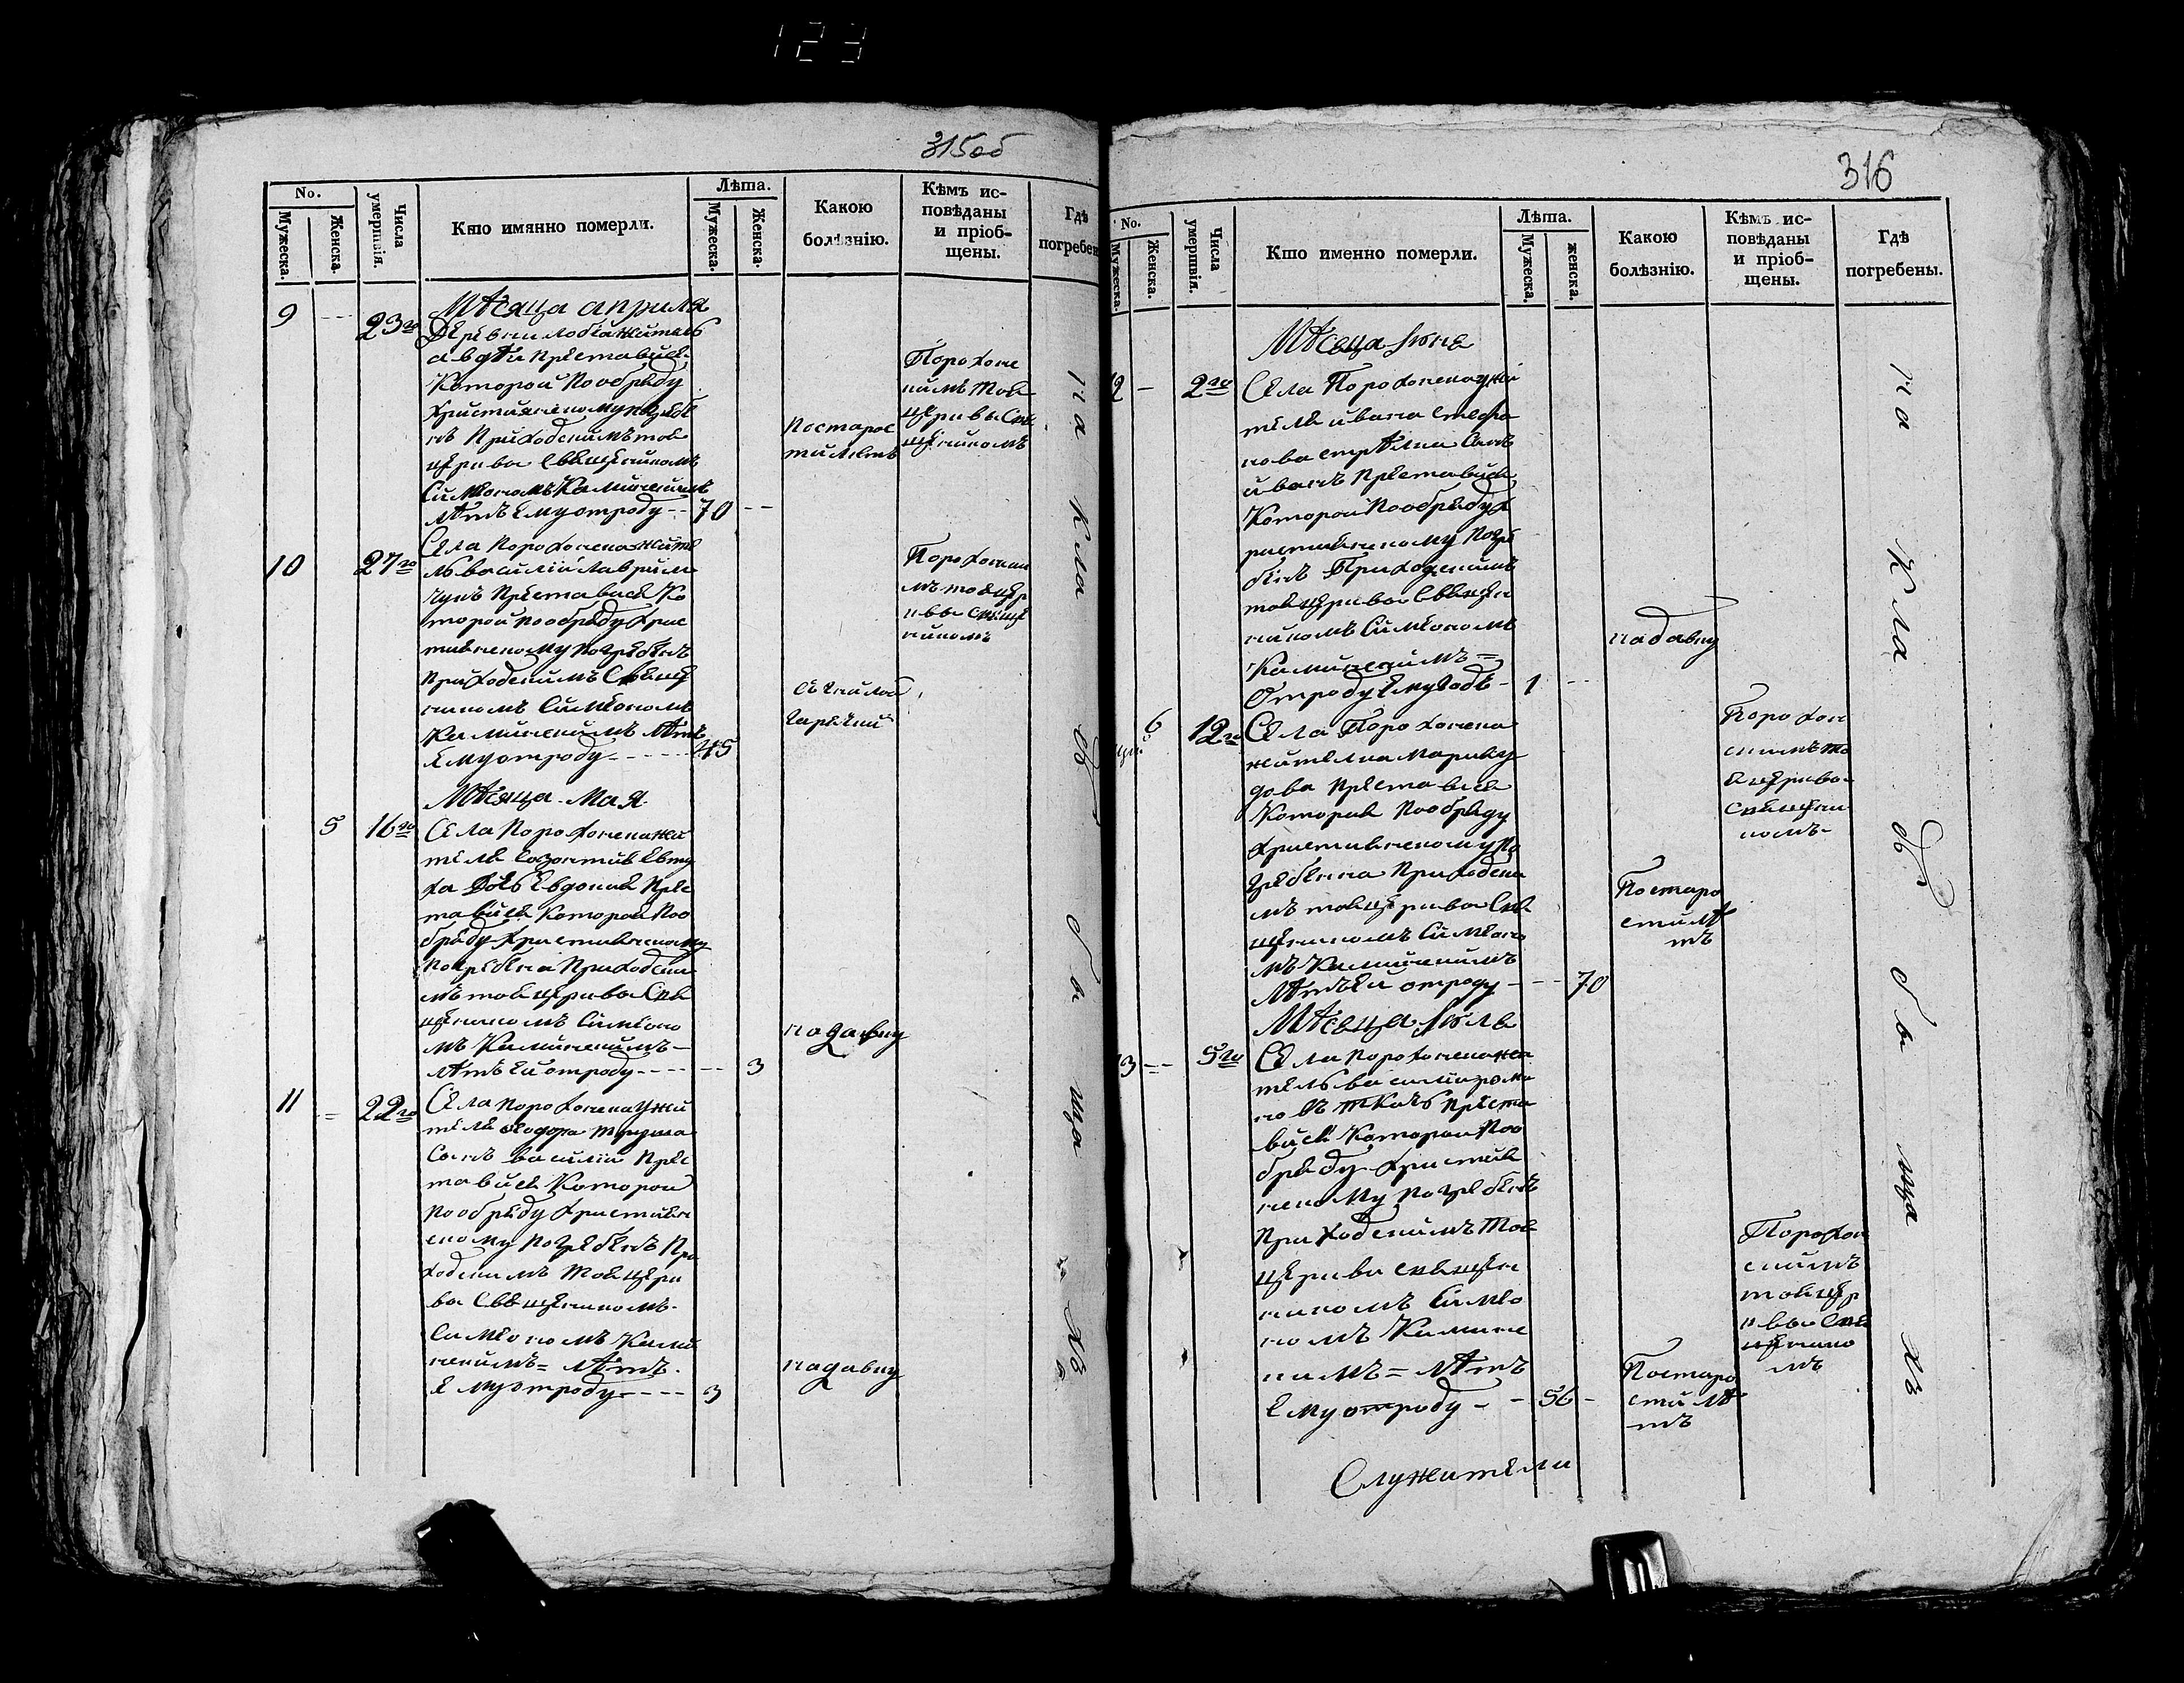 123
315об
No.
Мужеска.
Женска.
Числа умертвія.
Кто имянно померли.
Лѣта.
Мужеска.
Женска.
Какою болѣзнію.
Кѣмъ ис-
повѣданы
и пріоб-
щены.
Гдѣ
погребен
Мѣсяца априля
9 -- 23го
Деревни
Которой Пообряду
нъ Приходскимъ тоя
церкви Священникомъ
Симеономъ Каминскимъ
лѣтъ Ему отроду -- 70 --
Постарос
ти лѣтъ
Порохонс
кимъ тоя
церкви Свя
щеникомъ
10 27го
Села Порохонска жите
ль василій
Преставися Ко
торой пообряду Хрис
тиянскому погребенъ
Приходскимъ Свяще
никомъ Симеономъ
Каминскимъ лѣтъ
Ему отроду ---- 45
Порохонски
мъ тоя цер
кви Свяще
никомъ
Мѣсяца Мая
5 16го
Села Порохонска жи
теля
ха дочь Евдокия Прес
тавися Которой Поо
бряду Християнскому
Погребена Приходски
мъ тоя церкви Свя
щеникомъ Симеоно
мъ Каминскимъ -
лѣтъ Ей отроду ---- -- 3
надавку
11 = 22го
Села Порохонска жи
теля Феодора
Сынъ василій Прес
тавися Которой
Пообряду Християн
скому Погребенъ При
ходскимъ тоя церк
ви Священикомъ
Симеономъ Ками
нскимъ = лѣтъ
Ему отроду ---- 3
надавку
на кла дб и ща хъ
316
No.
Мужеска.
Женска.
Числа умертвія.
Кто именно померли.
Лѣта.
Мужеска.
женска.
Какою болѣзнію.
Кѣмъ ис-
повѣданы
и пріоб-
щены.
Гдѣ
погребены.
Мѣсеца Июня
12 - 2го
Села Порохонска жи
теля ивана стефа
нова Сынъ
иванъ Преставися
Которой Пообряду Х
ристиянскому Погре
бенъ Приходскимъ
тоя церкви Священ
никомъ Симеономъ
Каминскимъ =
Отроду Ему Годъ - 1 --
надавку
6 12го
Села Порохонска
жителка
Преставися
Которая Пообряду
Християнскому По
гребенна Приходски
мъ тоя церкви Свя
щеникомъ Симеоно
мъ Каминскимъ
Лѣтъ Ей отроду - -- 70
Постаро
сти лѣ
тъ
Порохон
скимъ то
я церкви
Священи
комъ -
Мѣсяца Июля
13 -- 5го
Села Порохонска жи
тель василій рома
новъ ткачъ Преста
вися Которой Поо
бряду Християн
скому погребенъ
Приходскимъ тоя
церкви священ
никомъ Симео
номъ Каминс
кимъ = лѣтъ
Ему отроду - - 56 -
Постаро
сти лѣ
тъ
Порохон
скимъ
тоя цер
кви Свя
щенико
мъ
на кла дб и ща хъ
Служители